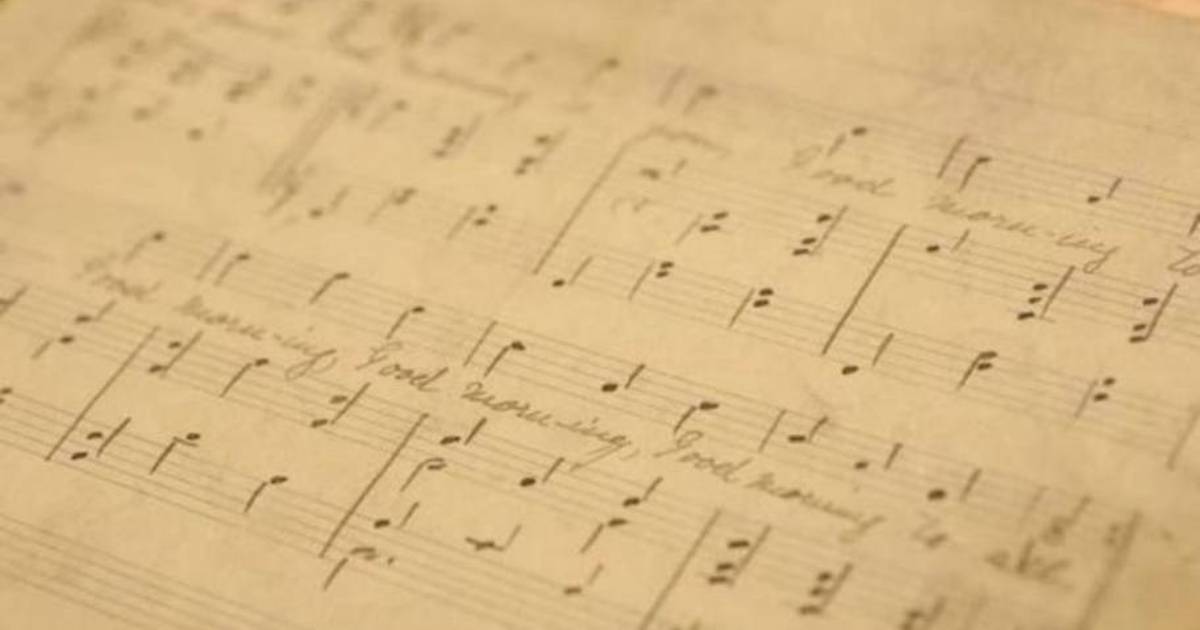 Good morn-ing to
Good morn-ing, Good morn-ing, Good morning to all